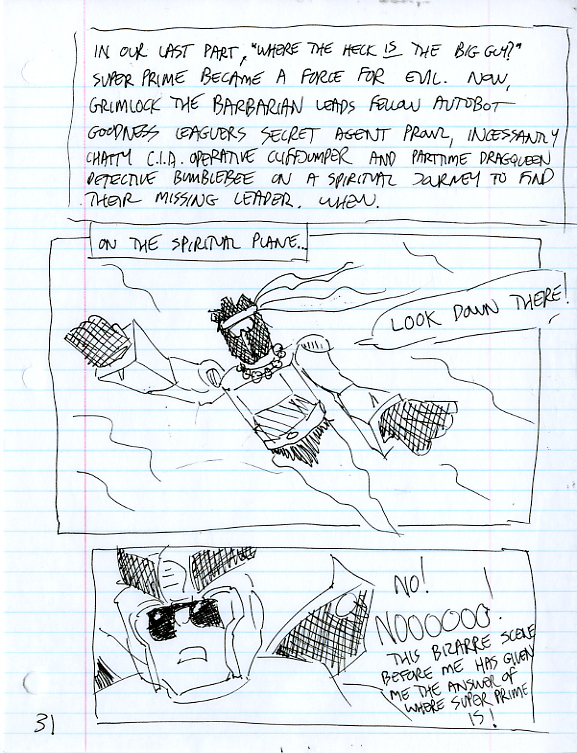 IN OUR LAST PART, "WHERE THE HECK IS THE BIG GUY?"
SUPER PRIME BECAME A FORCE FOR EVIL. NOW,
GRIMLOCK THE BARBARIAN LEADS FELLOW AUTOBOT
GOODNESS LEAGUERS SECRET AGENT PROWL, INCESSANTLY
CHATTY C.I.A. OPERATIVE CLIFFJUMPER AND PARTTIME DRAGQUEEN
DETECTIVE BUMBLEBEE ON A SPIRITUAL JOURNEY TO FIND
THEIR MISSING LEADER. WHEN.
ON THE SPIRITUAL PLANE...
LOOK DOWN THERE!
NO!
NOOOOOO.
THIS BIZARRE SCENE
BEFORE ME HAS GIVEN
ME THE ANSWER OF
WHERE SUPER PRIME
IS!
31